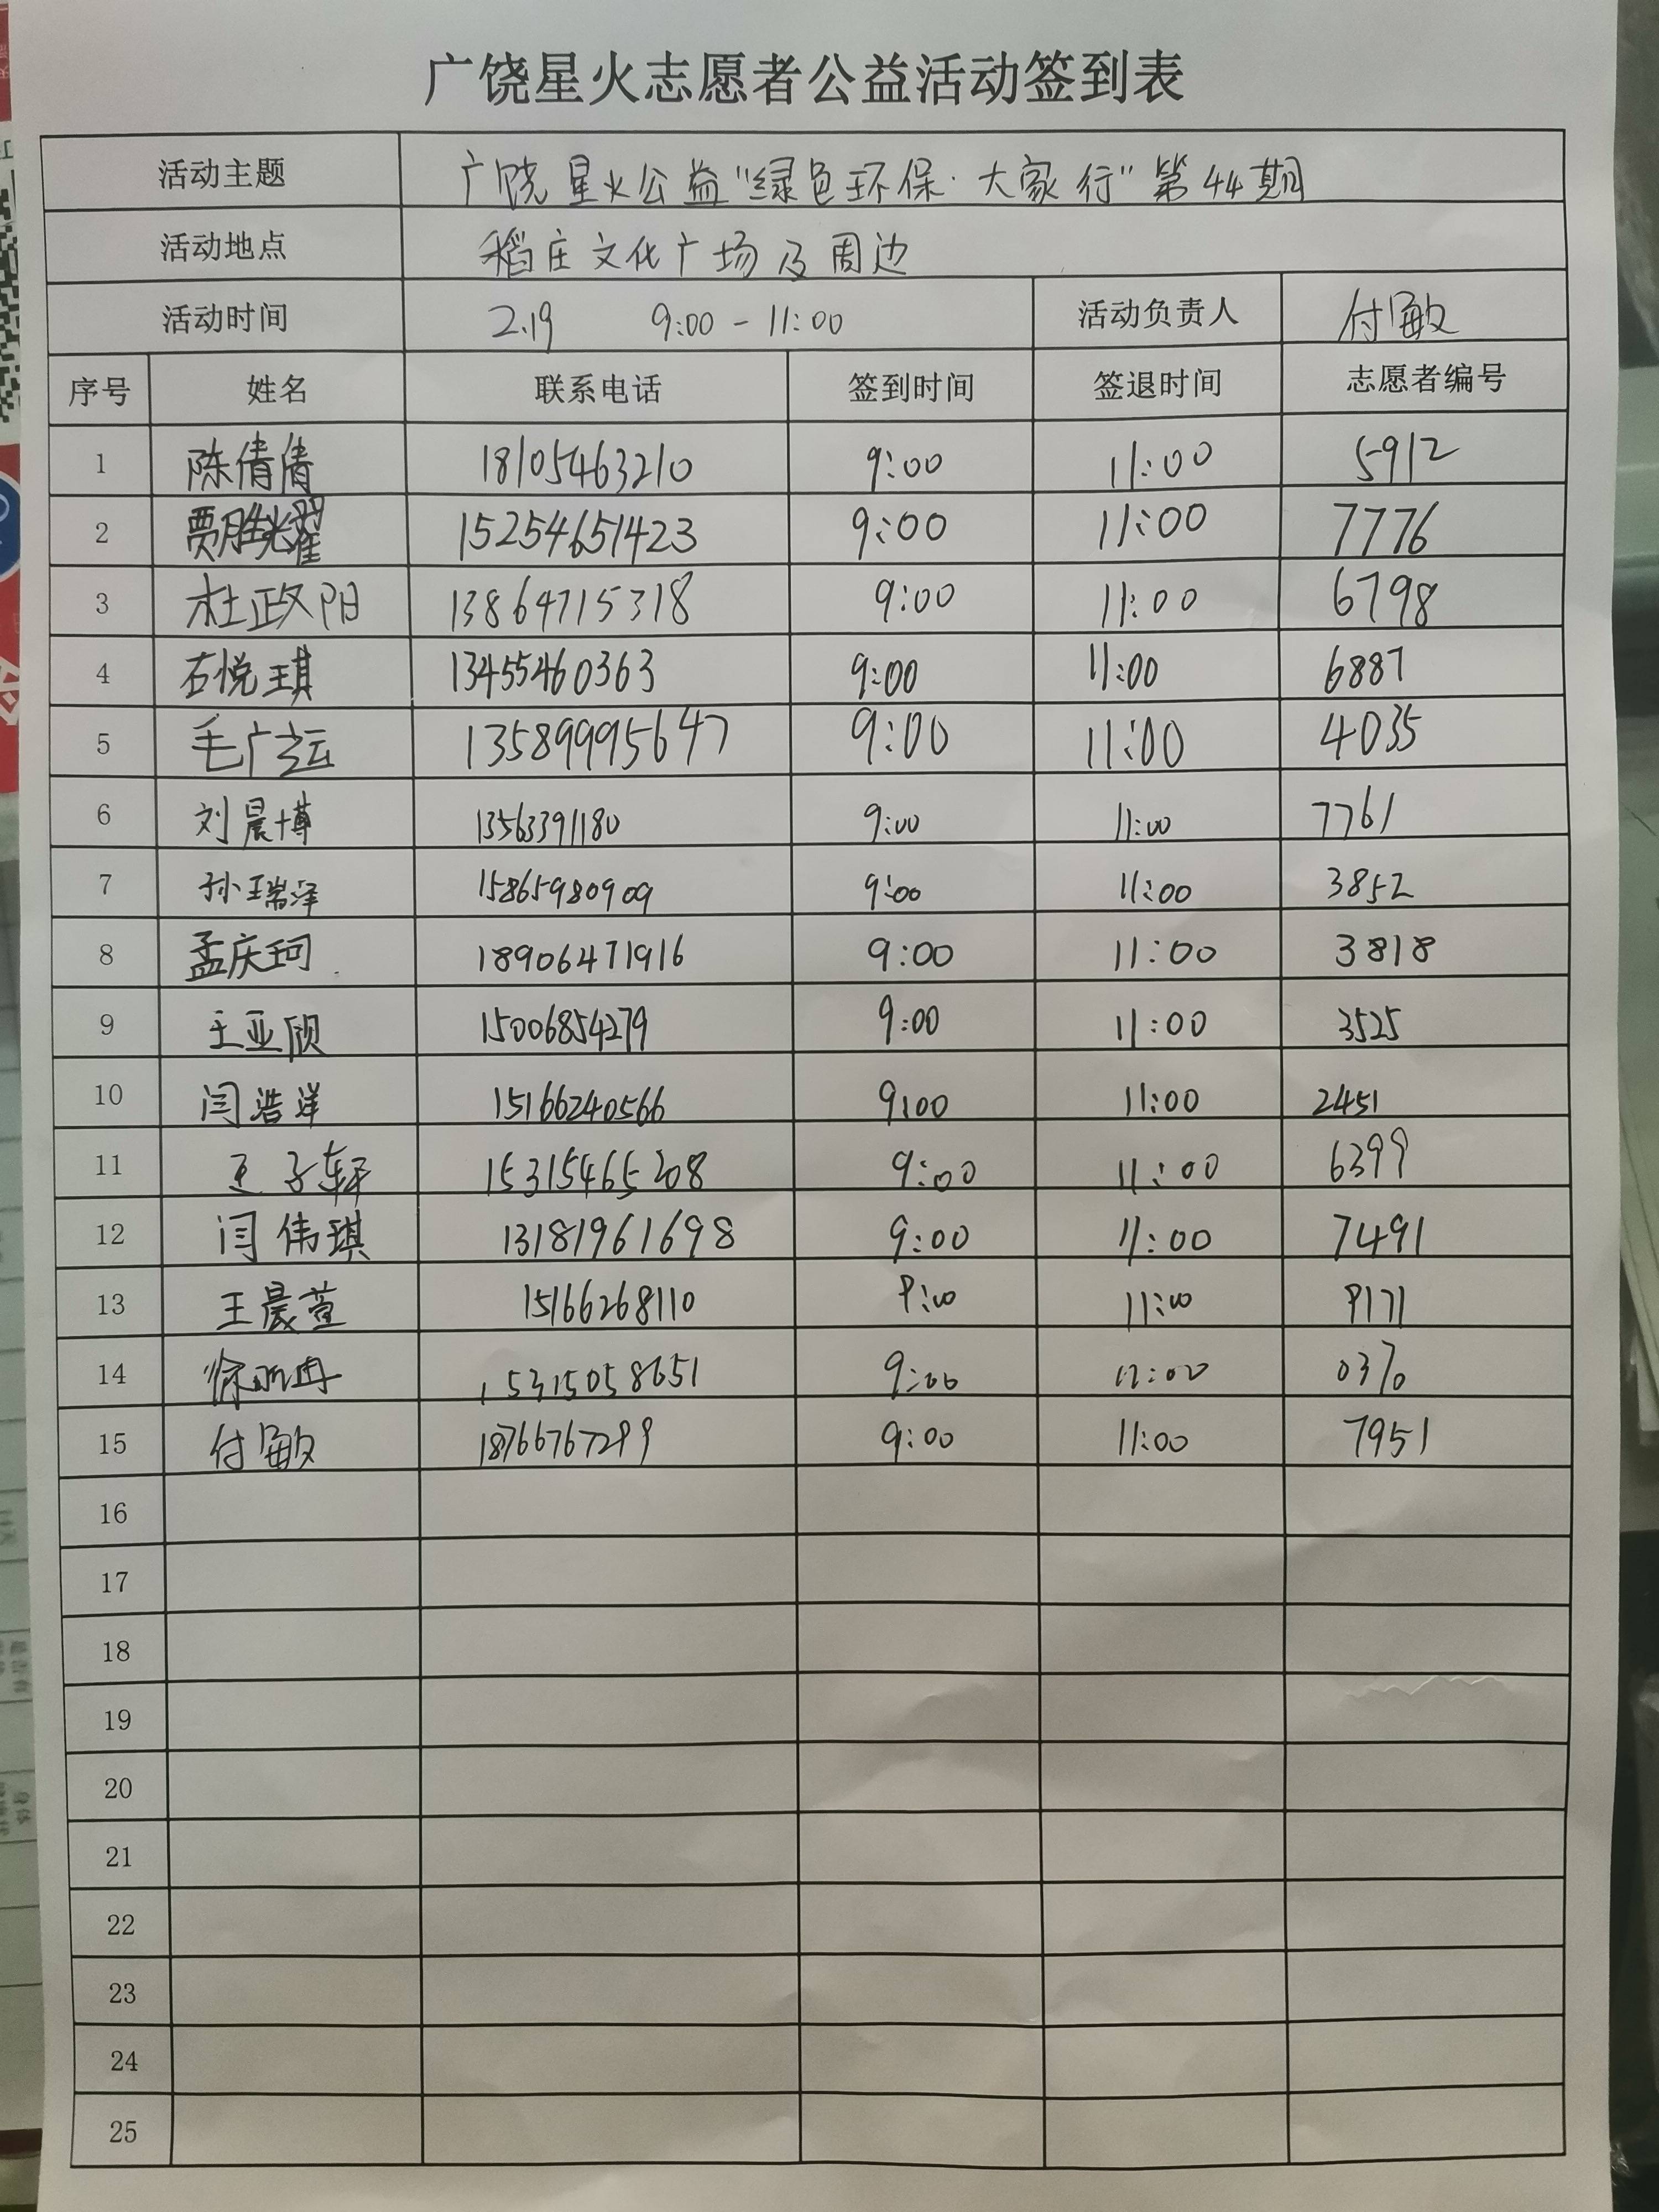 广饶星火志愿者公益活动签到表
活动主题 广饶星火公益“绿色环保·大家行”第44期
活动地点 稻庄文化广场及周边
活动时间 2.19 9:00-11:00 活动负责人 付敏
序号 姓名 联系电话 签到时间 签退时间 志愿者编号
1 陈倩倩 18105463210 9:00 11:00 5912
2 贾胜耀 15254651423 9:00 11:00 7776
3 杜政阳 13864715318 9:00 11:00 6798
4 石悦琪 13455460363 9:00 11:00 6887
5 毛广运 13589995647 9:00 11:00 4035
6 刘晨博 13563391180 9:00 11:00 7761
7 孙瑞泽 15865980909 9:00 11:00 3852
8 孟庆珂 18906471916 9:00 11:00 3818
9 王亚颀 15006854279 9:00 11:00 3525
10 闫浩洋 15166240566 9:00 11:00 2451
11 王子轩 15315465208 9:00 11:00 6399
12 闫伟琪 13181961698 9:00 11:00 7491
13 王晨萱 15166268110 9:00 11:00 9171
14 徐 15315058651 9:00 12:00 0370
15 付敏 18766767299 9:00 11:00 7951
16
17
18
19
20
21
22
23
24
25